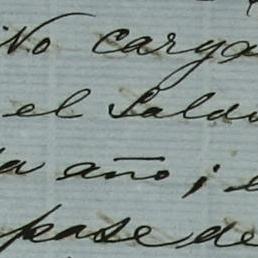 No carga
el Saldo
a año; e
pase de